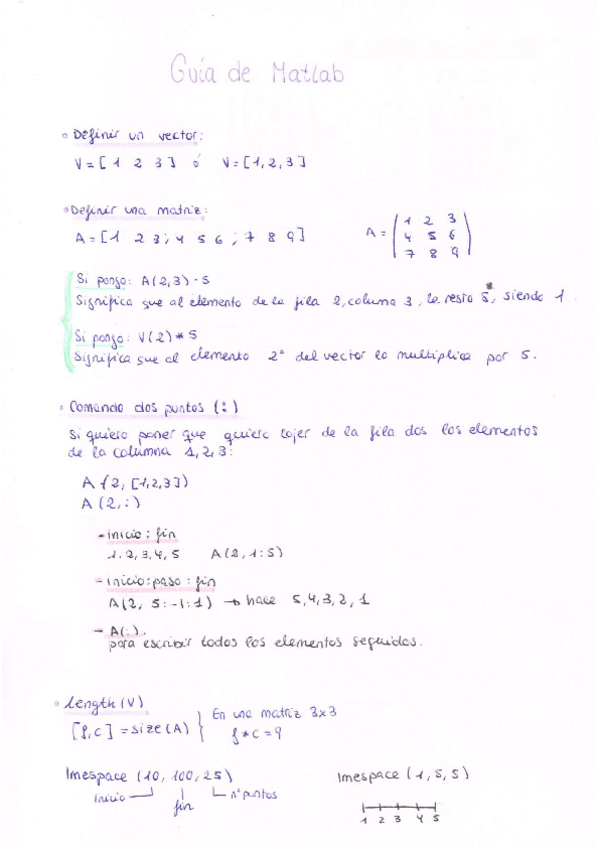 Guía de Matlab
• Definir un vector:
V = [ 1 2 3 ] ó V = [1, 2, 3]
• Definir una matriz:
A = [1 2 3; 4 5 6; 7 8 9]
A = ( 1 2 3
4 5 6
7 8 9 )
Si pongo: A(2,3) - 5
Significa que al elemento de la fila 2, columna 3, le resto 5, siendo 1.
Si pongo: V(2) * 5
Significa que al elemento 2º del vector lo multiplica por 5.
• Comando dos puntos (:)
Si quiero poner que quiero cojer de la fila dos los elementos
de la columna 1, 2, 3:
A (2, [1,2,3])
A (2, :)
- inicio : fin
1, 2, 3, 4, 5 A(2, 1:5)
- inicio:paso : fin
A(2, 5:-1:1) → hace 5, 4, 3, 2, 1
- A(:).
para escribir todos los elementos seguidos.
• length (V)
[f, c] = size (A) } En una matriz 3x3
f * c = 9
lmespace (10, 100, 25)
inicio fin nº puntos
lmespace (1, 5, 5)
1 2 3 4 5